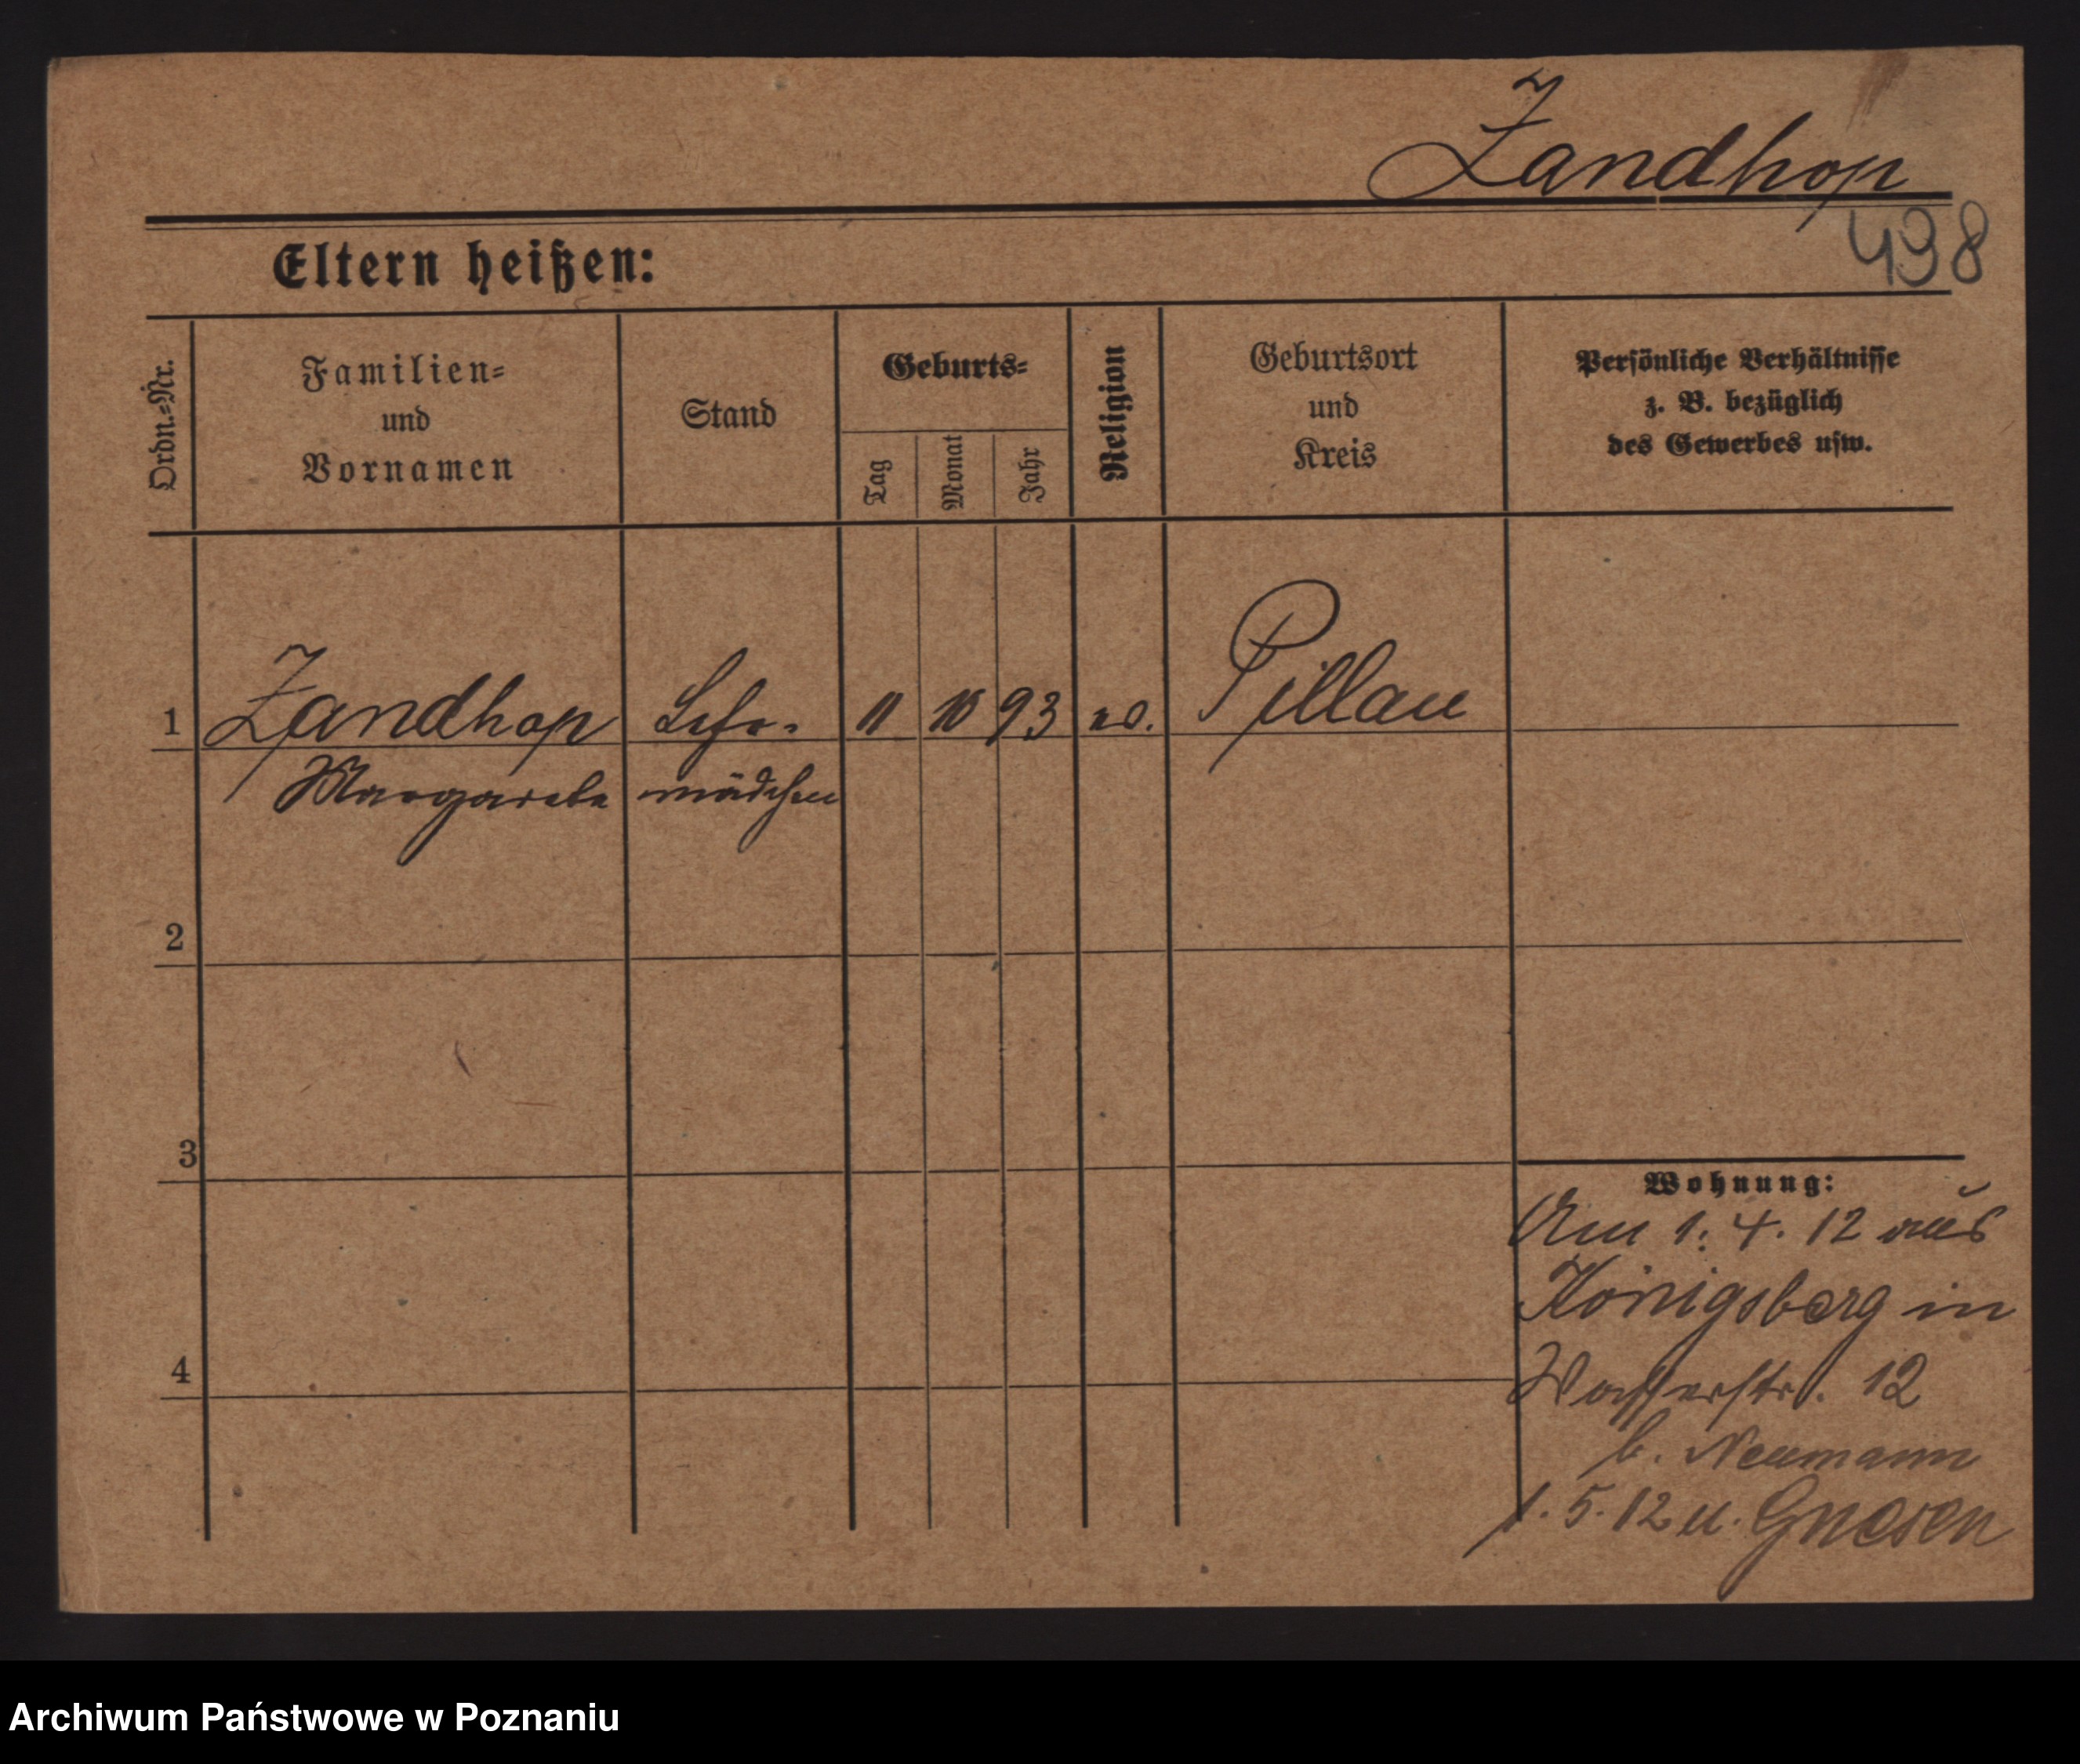 Zandhop
498
Eltern heißen:
Ordn.=Nr.
Familien=
und
Vornamen
Stand
Geburts=
Tag
Monat
Jahr
Religion
Geburtsort
und
Kreis
Persönliche Verhältnisse
z. B. bezüglich
des Gewerbes usw.
1 Zandhop 11 10 93 Pillau
Margarete mädchen
2
3
4
Wohnung:
Am 1. 4. 12 aus
Königsberg in
Wasserstr. 12
b. Neumann
1. 5. 12 u. Gnesen
Archiwum Państwowe w Poznaniu